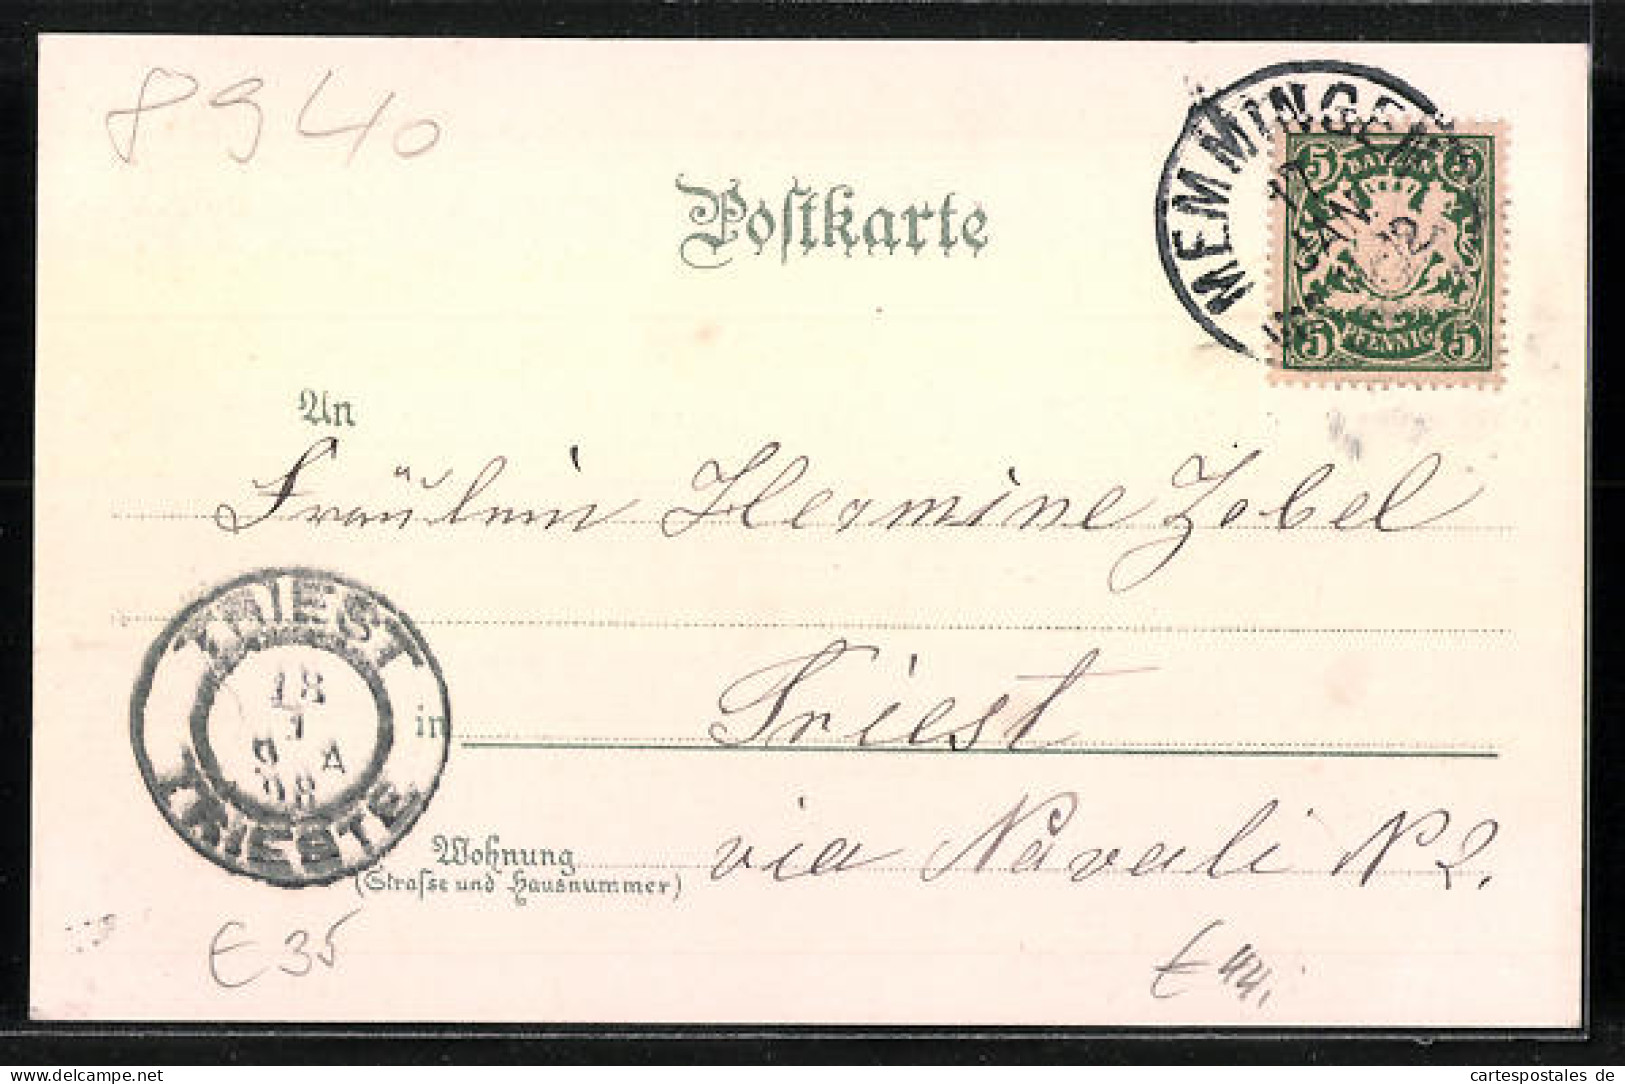 8940
MEMMINGEN
17
JAN.
5 BAYERN 5
5 PFENNIG 5
Postkarte
An
Fräulein Hermine Zobel
TRIEST
18
1
9 A
98
TRIESTE
in Triest
Wohnung
(Strasse und Hausnummer)
via Navali N 2.
E 35
cartespostales de